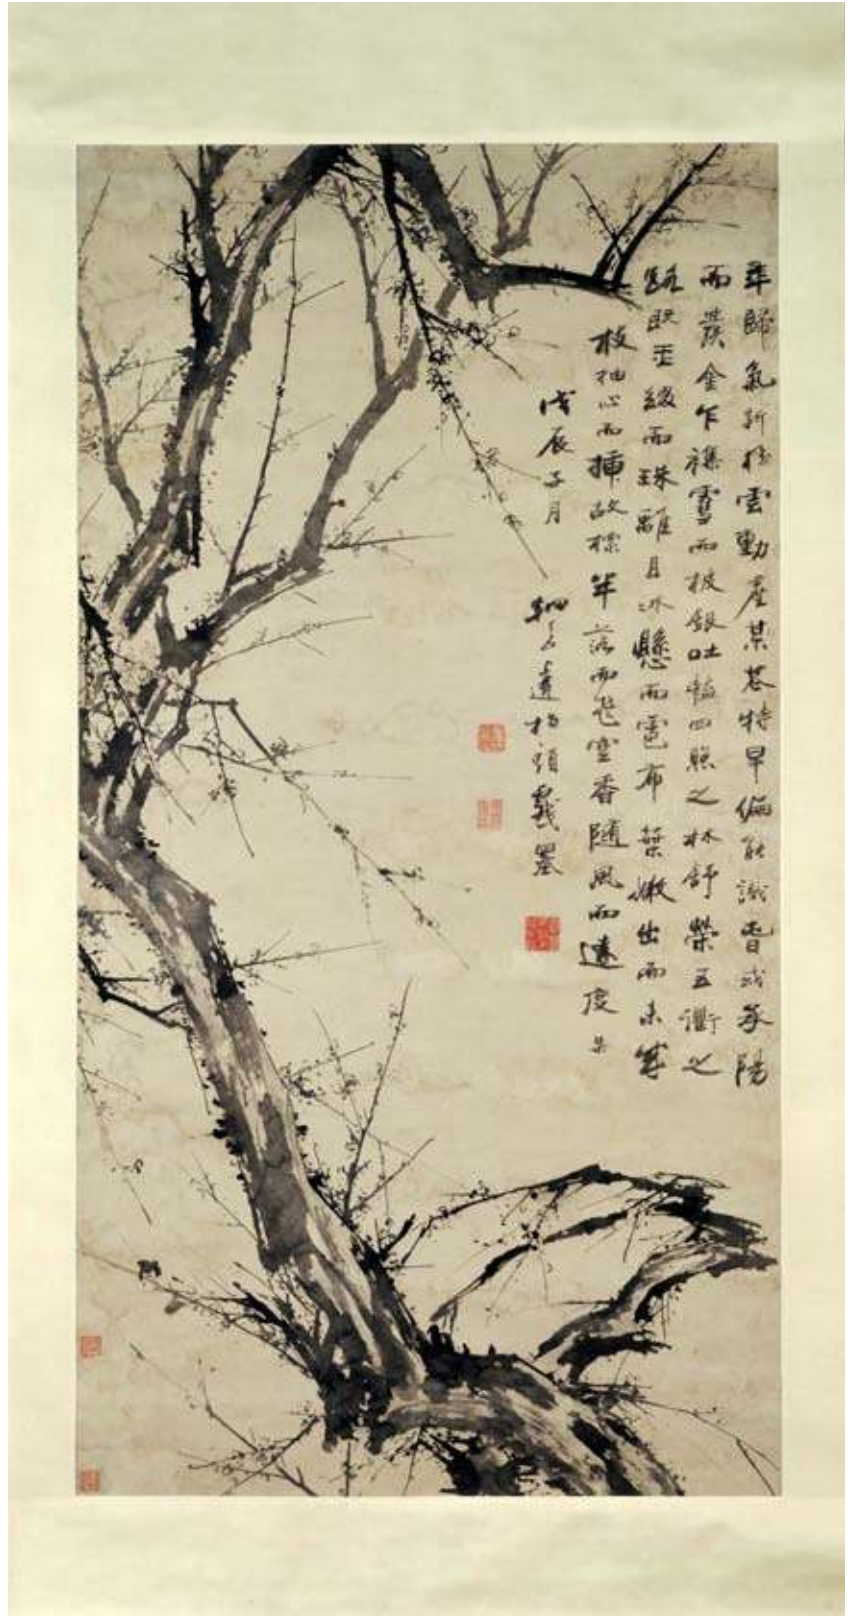 年歸氣新搖雲動塵某花特早偏能識春或承陽
而發金乍襍雪而被銀吐艷四照之林舒榮五衢之
路既玉綴而珠離且冰懸而雹布葉嫩出而未成
枝抽心而插故摽半落而飛空香隨風而遠度
戊辰子月 戲墨